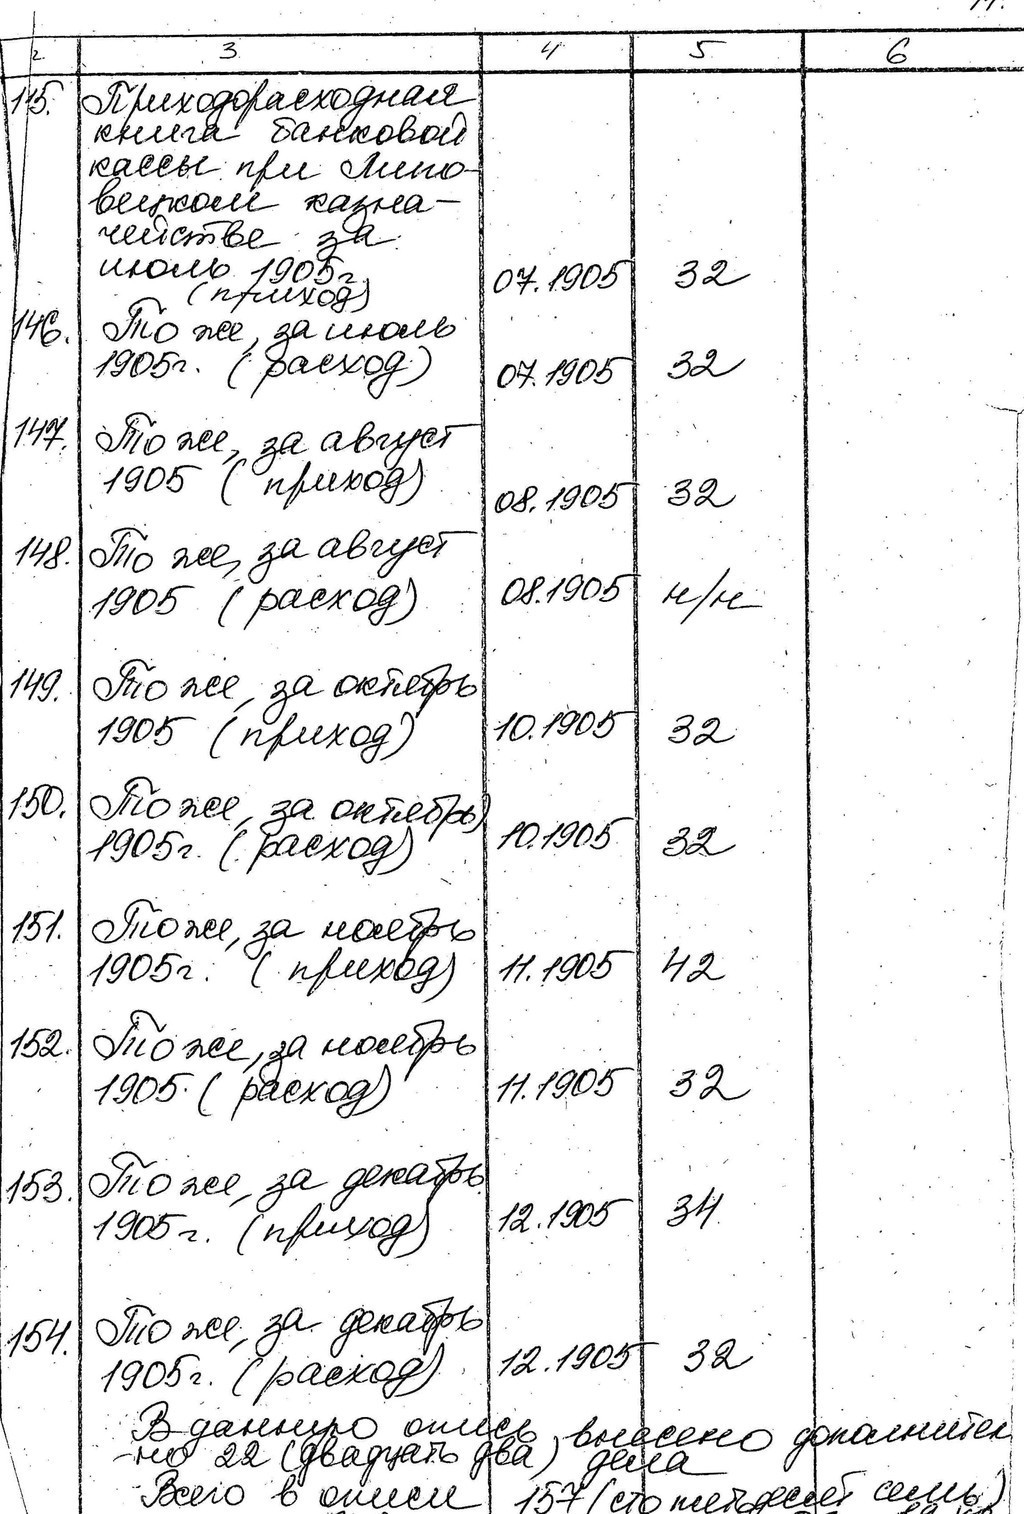 2 3 4 5 6
145. Приходорасходная
книга банковой
кассы при Липо-
вецком казна-
чействе за
июль 1905г. 07.1905 32
(приход)
146. То же, за июль
1905г. (расход) 07.1905 32
147. То же, за август
1905 (приход) 08.1905 32
148. То же, за август
1905 (расход) 08.1905 н/н
149. То же, за октябрь
1905 (приход) 10.1905 32
150. То же, за октябрь
1905г. (расход) 10.1905 32
151. То же, за ноябрь
1905г. (приход) 11.1905 42
152. То же, за ноябрь
1905. (расход) 11.1905 32
153. То же, за декабрь
1905г. (приход) 12.1905 34
154. То же, за декабрь
1905г. (расход) 12.1905 32
В данную опись внесено дополнител
-но 22 (двадцать два) дела
Всего в описи 157 (сто пятьдесят семь)